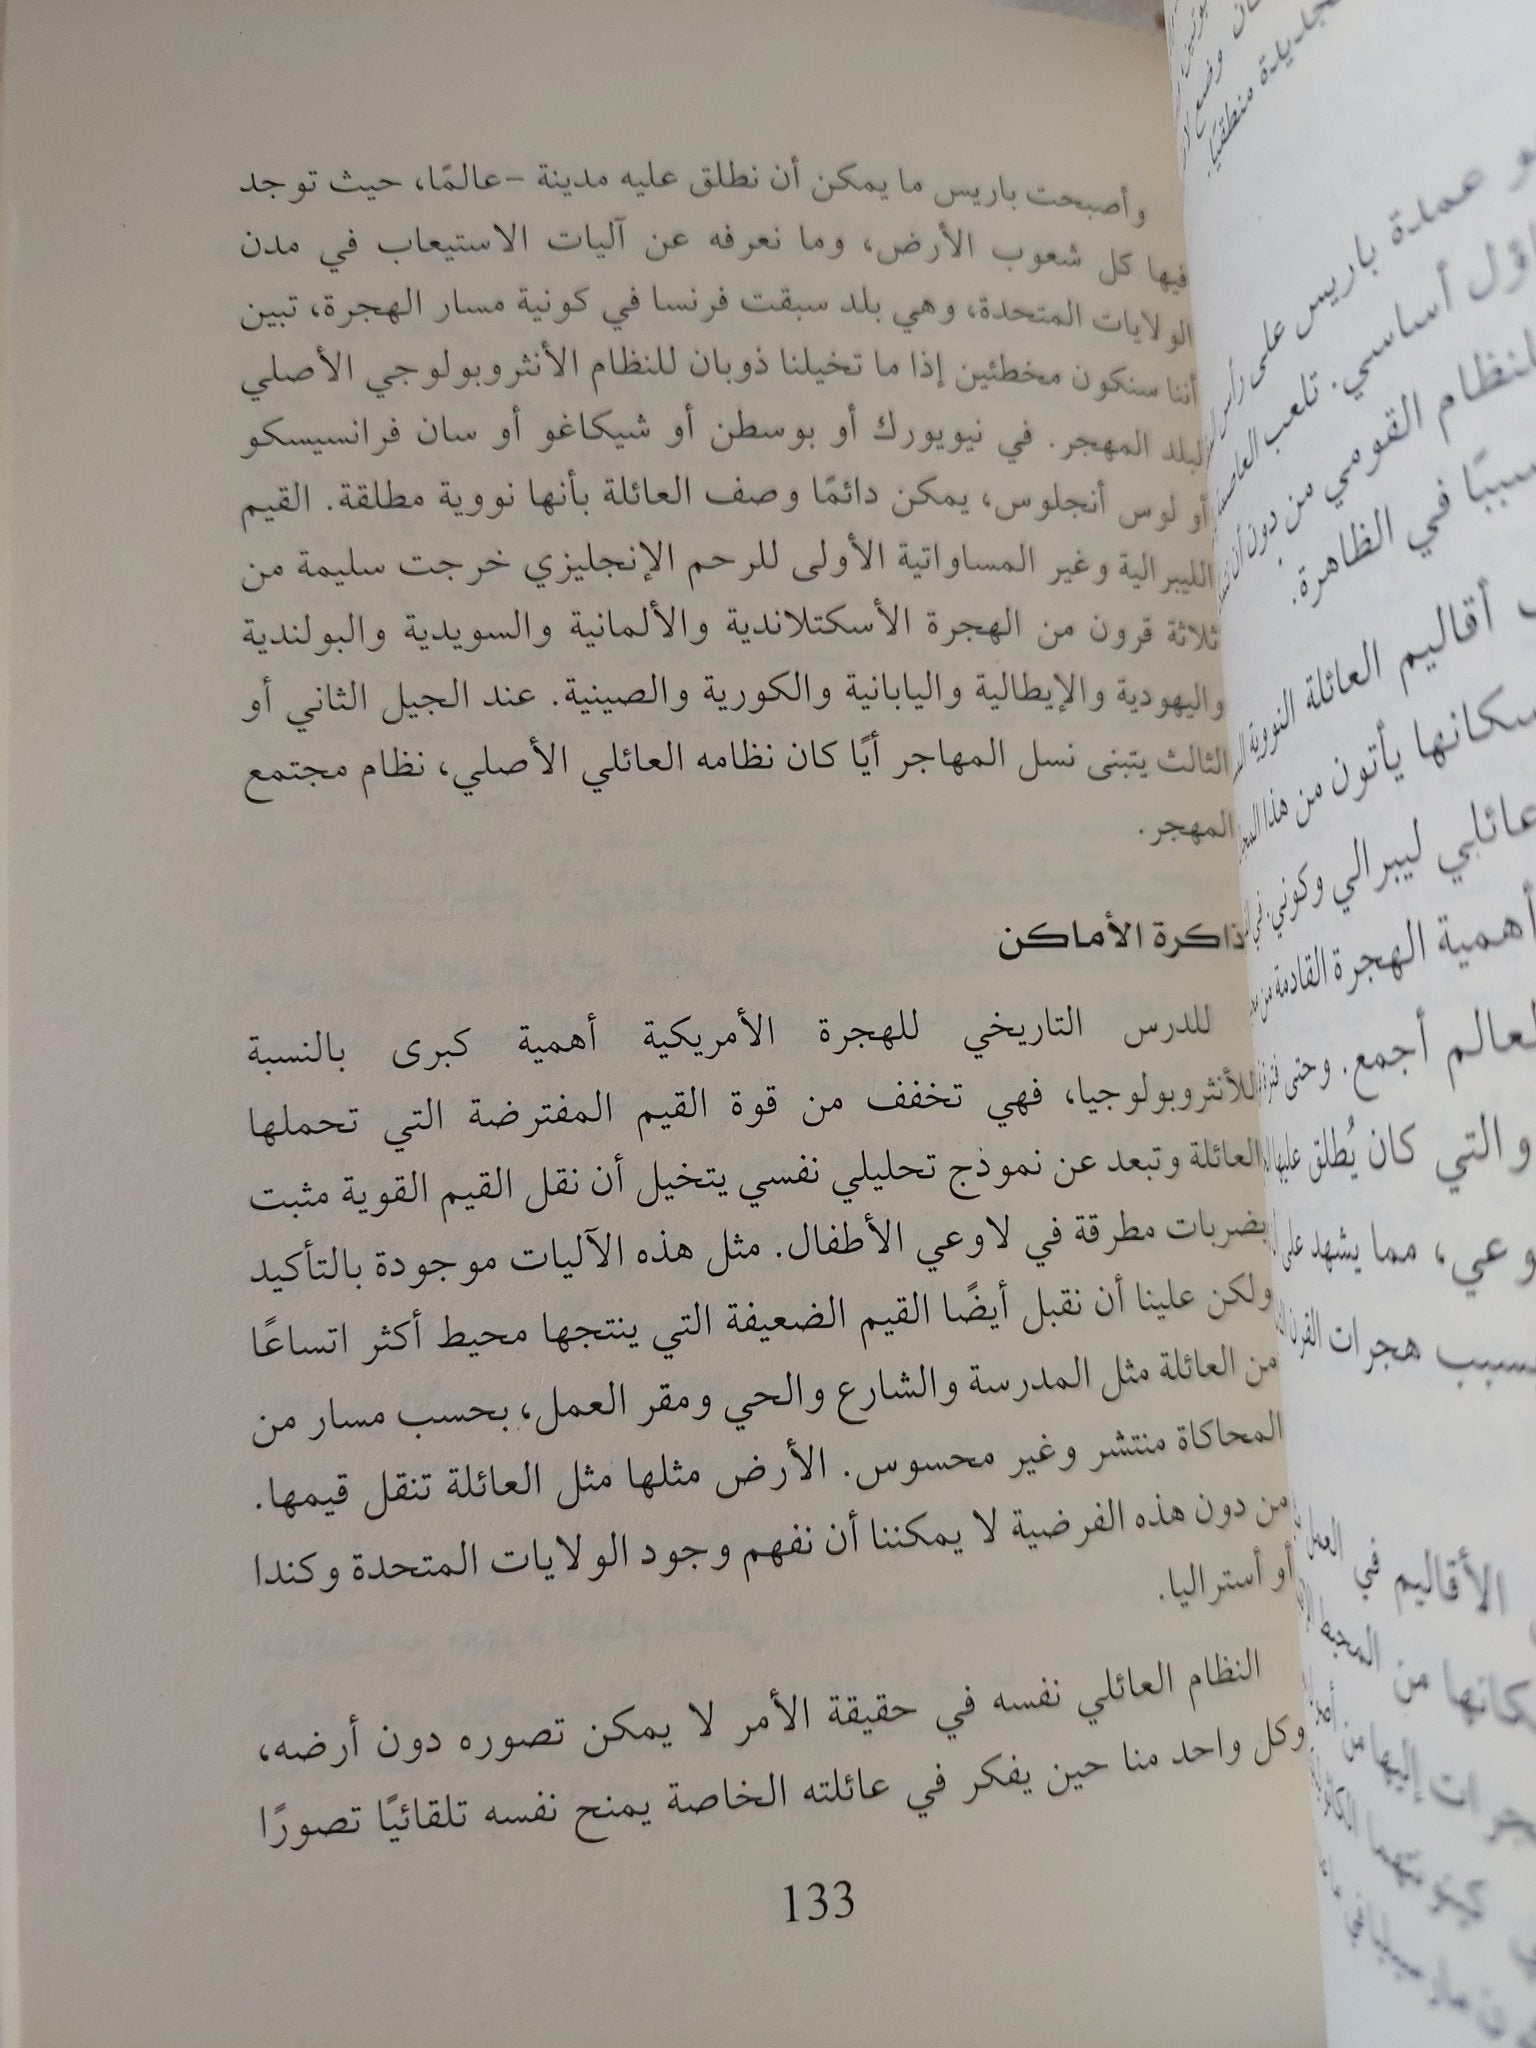 وأصبحت باريس ما يمكن أن نطلق عليه مدينة –عالمًا، حيث توجد
فيها كل شعوب الأرض، وما نعرفه عن آليات الاستيعاب في مدن
الولايات المتحدة، وهي بلد سبقت فرنسا في كونية مسار الهجرة، تبين
أننا سنكون مخطئين إذا ما تخيلنا ذوبان للنظام الأنثروبولوجي الأصلي
لبلد المهجر. في نيويورك أو بوسطن أو شيكاغو أو سان فرانسيسكو
أو لوس أنجلوس، يمكن دائمًا وصف العائلة بأنها نووية مطلقة. القيم
الليبرالية وغير المساواتية الأولى للرحم الإنجليزي خرجت سليمة من
ثلاثة قرون من الهجرة الأسكتلاندية والألمانية والسويدية والبولندية
واليهودية والإيطالية واليابانية والكورية والصينية. عند الجيل الثاني أو
الثالث يتبنى نسل المهاجر أيًا كان نظامه العائلي الأصلي، نظام مجتمع
المهجر.
ذاكرة الأماكن
للدرس التاريخي للهجرة الأمريكية أهمية كبرى بالنسبة
للأنثروبولوجيا، فهي تخفف من قوة القيم المفترضة التي تحملها
العائلة وتبعد عن نموذج تحليلي نفسي يتخيل أن نقل القيم القوية مثبت
بضربات مطرقة في لاوعي الأطفال. مثل هذه الآليات موجودة بالتأكيد
ولكن علينا أن نقبل أيضًا القيم الضعيفة التي ينتجها محيط أكثر اتساعًا
من العائلة مثل المدرسة والشارع والحي ومقر العمل، بحسب مسار من
المحاكاة منتشر وغير محسوس. الأرض مثلها مثل العائلة تنقل قيمها.
من دون هذه الفرضية لا يمكننا أن نفهم وجود الولايات المتحدة وكندا
أو أستراليا.
النظام العائلي نفسه في حقيقة الأمر لا يمكن تصوره دون أرضه،
وكل واحد منا حين يفكر في عائلته الخاصة يمنح نفسه تلقائيًا تصورًا
133
جديدة منطقيًا.
عمدة باريس على رأس
أساسي. تلعب العاصمة
للنظام القومي من دون أن
سببًا في الظاهرة.
أقاليم العائلة النووية
سكانها يأتون من هذا
عائلي ليبرالي وكوني. في
أهمية الهجرة القادمة من
العالم أجمع. وحتى
والتي كان يُطلق عليها
وعي، مما يشهد على
بسبب هجرات القرن
الأقاليم في
من المحيط
إليها من